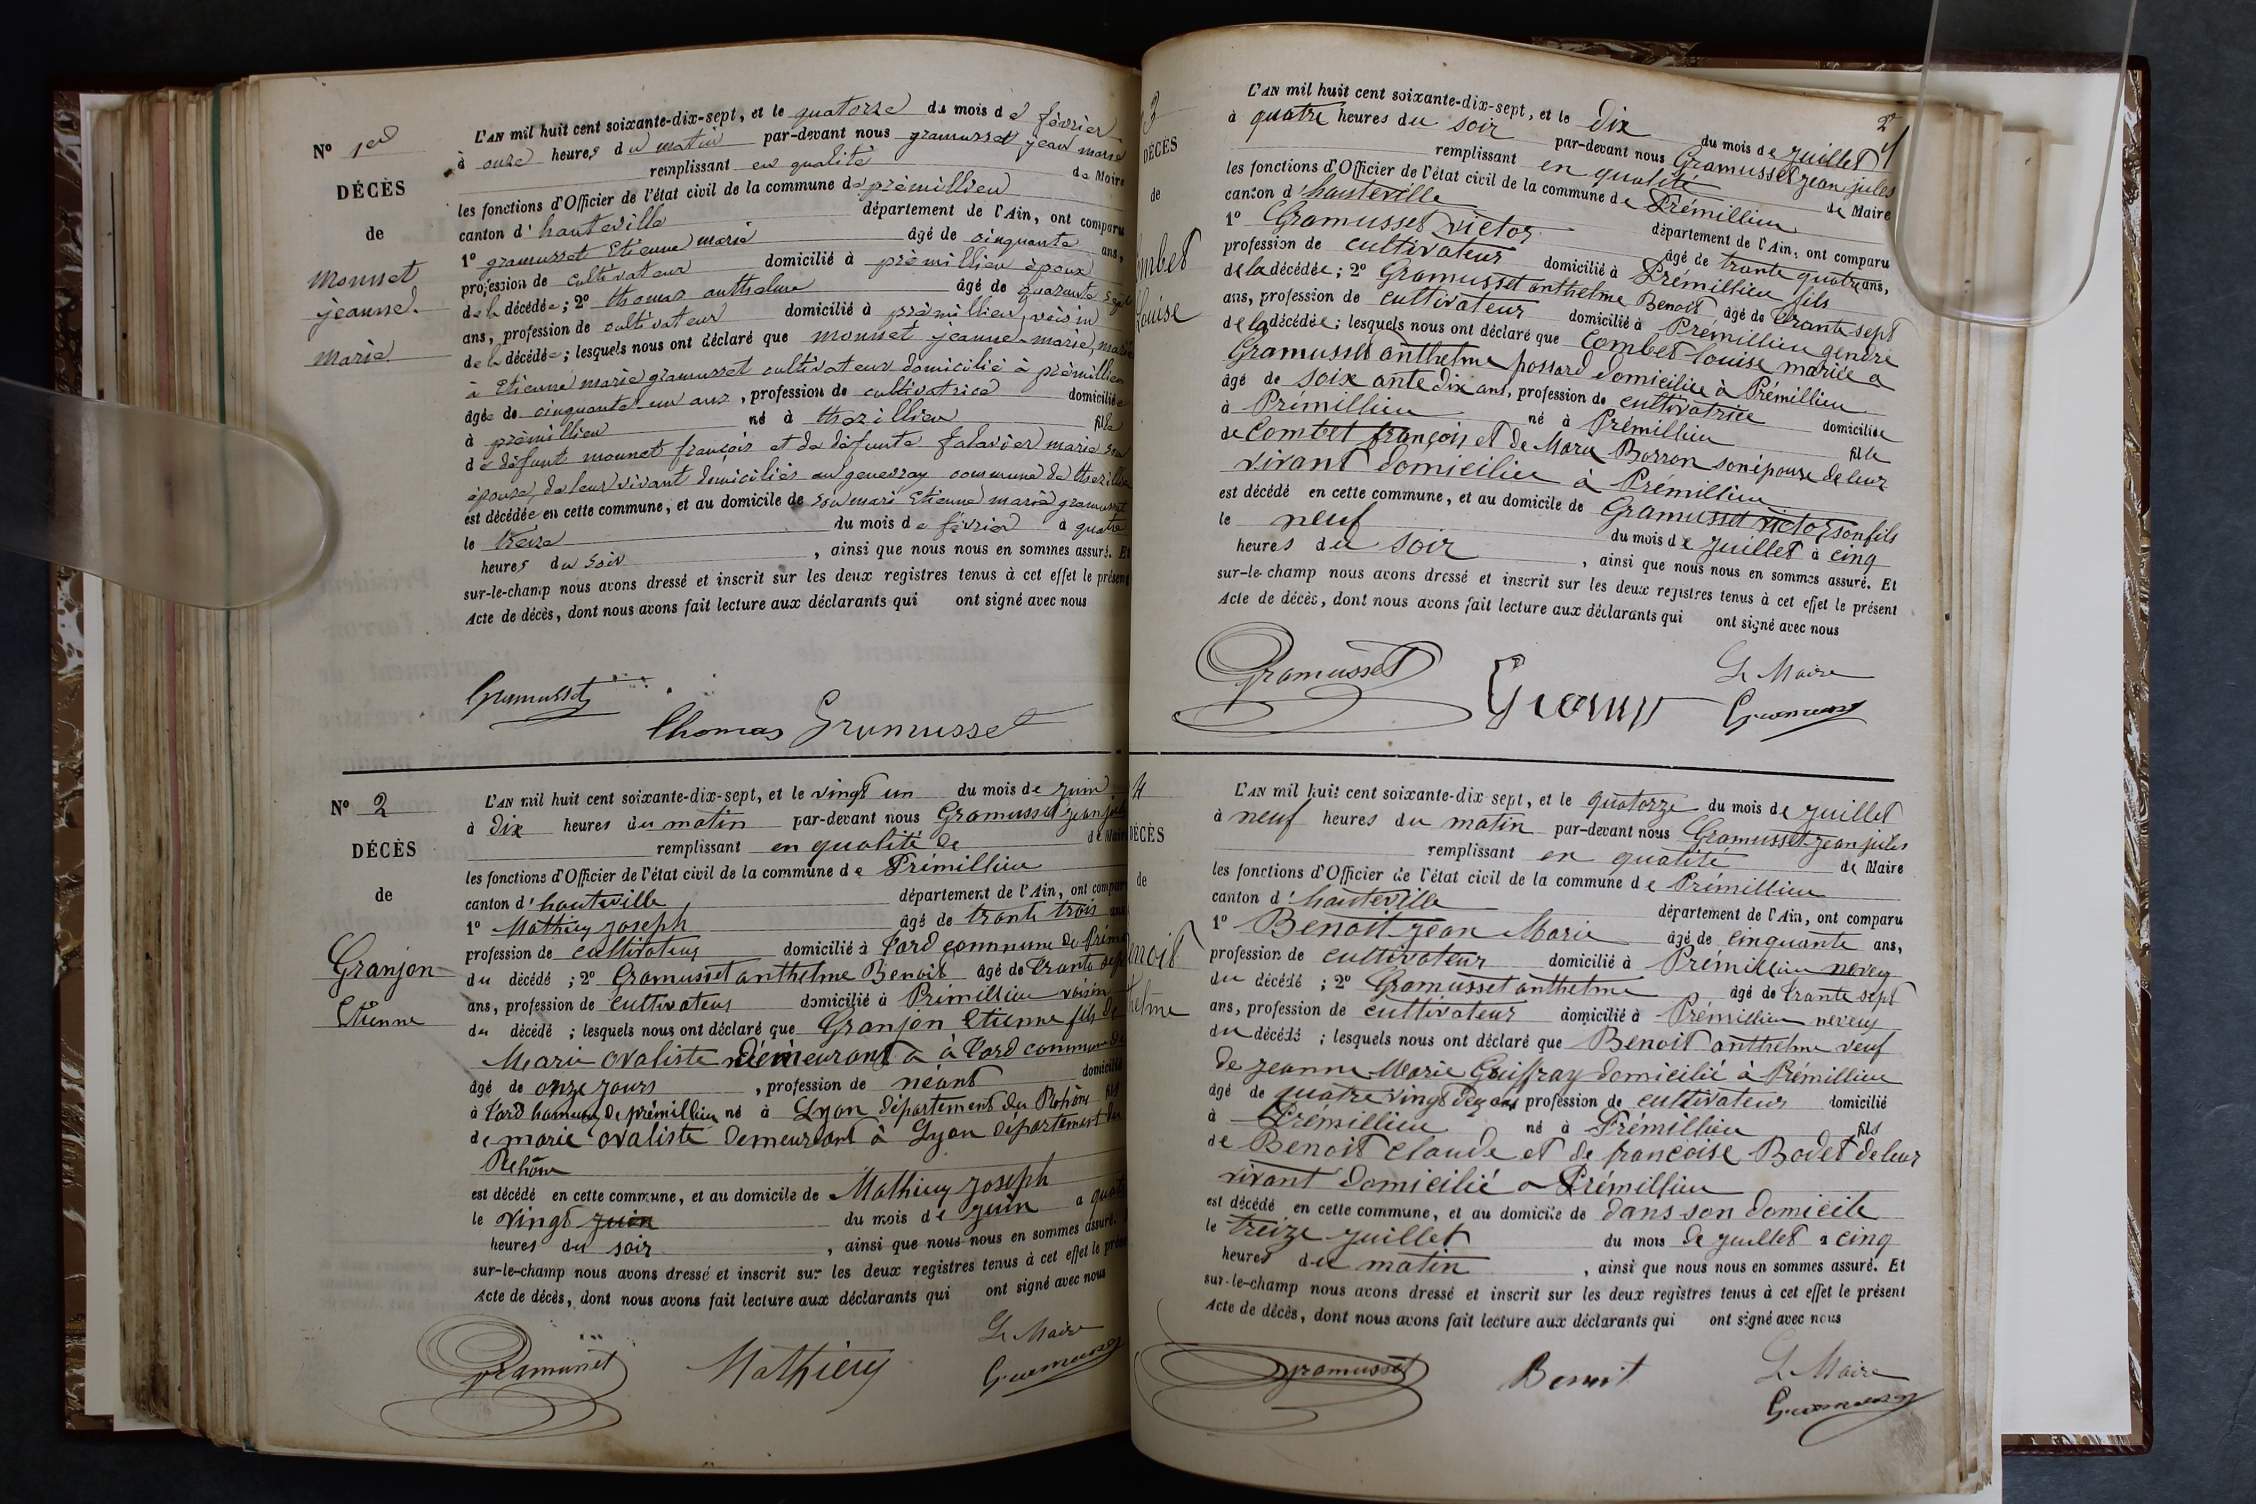 N° 1er
DÉCÈS
de
Monnet
jeanne-
marie
L'AN mil huit cent soixante-dix-sept, et le quatorze du mois de février
à onze heures du matin par-devant nous gramusset jean marie
remplissant en qualité de Maire
les fonctions d'Officier de l'état civil de la commune de prémillieu
canton d'hauteville département de l'Ain, ont comparu
1° gramusset Etienne marie âgé de cinquante ans,
profession de cultivateur domicilié à prémillieu époux
de la décédée; 2° thomas anthelme âgé de quarante sept
ans, profession de cultivateur domicilié à prémillieu, voisin
de la décédée; lesquels nous ont déclaré que monnet jeanne-marie, mariée
à Etienne marie gramusset cultivateur domicilié à prémillieu
âgée de cinquante-un ans, profession de cultivatrice domiciliée
à prémillieu né à thézillieu fille
de défunt monnet françois et de défunte falavier marie son
épouse, de leur vivant domiciliés au genevray commune de thezillieu
est décédée en cette commune, et au domicile de son mari Etienne marie gramusset
le treize du mois de février à quatre
heures du soir, ainsi que nous nous en sommes assuré. Et
sur-le-champ nous avons dressé et inscrit sur les deux registres tenus à cet effet le présent
Acte de décès, dont nous avons fait lecture aux déclarants qui ont signé avec nous
Gramusset
Thomas Gramusset
N° 2
DÉCÈS
de
Granjon
Etienne
L'AN mil huit cent soixante-dix-sept, et le vingt un du mois de juin
à dix heures du matin par-devant nous Gramusset jean jules
remplissant en qualité de de Maire
les fonctions d'Officier de l'état civil de la commune de Prémillieu
canton d'hauteville département de l'Ain, ont comparu
1° Mathieu joseph âgé de trante trois ans
profession de cultivateur domicilié à l'ard commune de Prémi
du décédé; 2° Gramusset anthelme Benoit âgé de trante sept
ans, profession de cultivateur domicilié à Prémillieu voisin
du décédé; lesquels nous ont déclaré que Granjon Etienne fils de
Marie ovaliste demeurant a à l'ard commune de
âgé de onze jours, profession de néant domicilié
à l'ard commune de prémillieu né à Lyon département du Rohône fils
de marie ovaliste demeurant à Lyon département du
Rehône
est décédé en cette commune, et au domicile de Mathieu joseph
le vingt juin du mois de juin a quatre
heures du soir, ainsi que nous nous en sommes assuré.
sur-le-champ nous avons dressé et inscrit sur les deux registres tenus à cet effet le présent
Acte de décès, dont nous avons fait lecture aux déclarants qui ont signé avec nous
Gramusset Mathieu
Le Maire
Gramusset
3
DÉCÈS
de
ombet
Louise
2
L'AN mil huit cent soixante-dix-sept, et le dix du mois de juillet
à quatre heures du soir par-devant nous Gramusset jean jules
remplissant en qualité de Maire
les fonctions d'Officier de l'état civil de la commune de Prémillieu
canton d'hauteville département de l'Ain, ont comparu
1° Gramusset victor âgé de trante quatre ans,
profession de cultivateur domicilié à Prémillieu fils
de la décédée; 2° Gramusset anthelme Benoit âgé de trante sept
ans, profession de cultivateur domicilié à Prémillieu gendre
de la décédée; lesquels nous ont déclaré que Combet louise mariée a
Gramusset anthelme possard domiciliée à Prémillieu
âgé de soixante dix ans, profession de cultivatrice domiciliée
à Prémillieu né à Prémillieu fille
de Combet françois et de Marie Borron son épouse de leur
vivant domicilié à Prémillieu
est décédé en cette commune, et au domicile de Gramusset victor son fils
le neuf du mois de juillet à cinq
heures du soir, ainsi que nous nous en sommes assuré. Et
sur-le-champ nous avons dressé et inscrit sur les deux registres tenus à cet effet le présent
Acte de décès, dont nous avons fait lecture aux déclarants qui ont signé avec nous
Gramusset
Le Maire
Gramusset
4
DÉCÈS
de
enoit
thelme
L'AN mil huit cent soixante-dix sept, et le quatorze du mois de juillet
à neuf heures du matin par-devant nous Gramusset jean jules
remplissant en qualité de Maire
les fonctions d'Officier de l'état civil de la commune de Prémillieu
canton d'hauteville département de l'Ain, ont comparu
1° Benoit jean Marie âgé de cinquante ans,
profession de cultivateur domicilié à Prémillieu neveu
du décédé; 2° Gramusset anthelme âgé de trante sept
ans, profession de cultivateur domicilié à Prémillieu neveu
du décédé; lesquels nous ont déclaré que Benoit anthelme veuf
de jeanne Marie Guiffray domicilié à Prémillieu
âgé de quatre vingt dex ans profession de cultivateur domicilié
à Prémillieu né à Prémillieu fils
de Benoit claude et de francoise Bodet de leur
vivant domicilié a Prémillieu
est décédé en cette commune, et au domicile de dans son domicile
le treize juillet du mois de juillet a cinq
heures du matin, ainsi que nous nous en sommes assuré. Et
sur-le-champ nous avons dressé et inscrit sur les deux registres tenus à cet effet le présent
Acte de décès, dont nous avons fait lecture aux déclarants qui ont signé avec nous
Gramusset Benoit
Le Maire
Gramusset